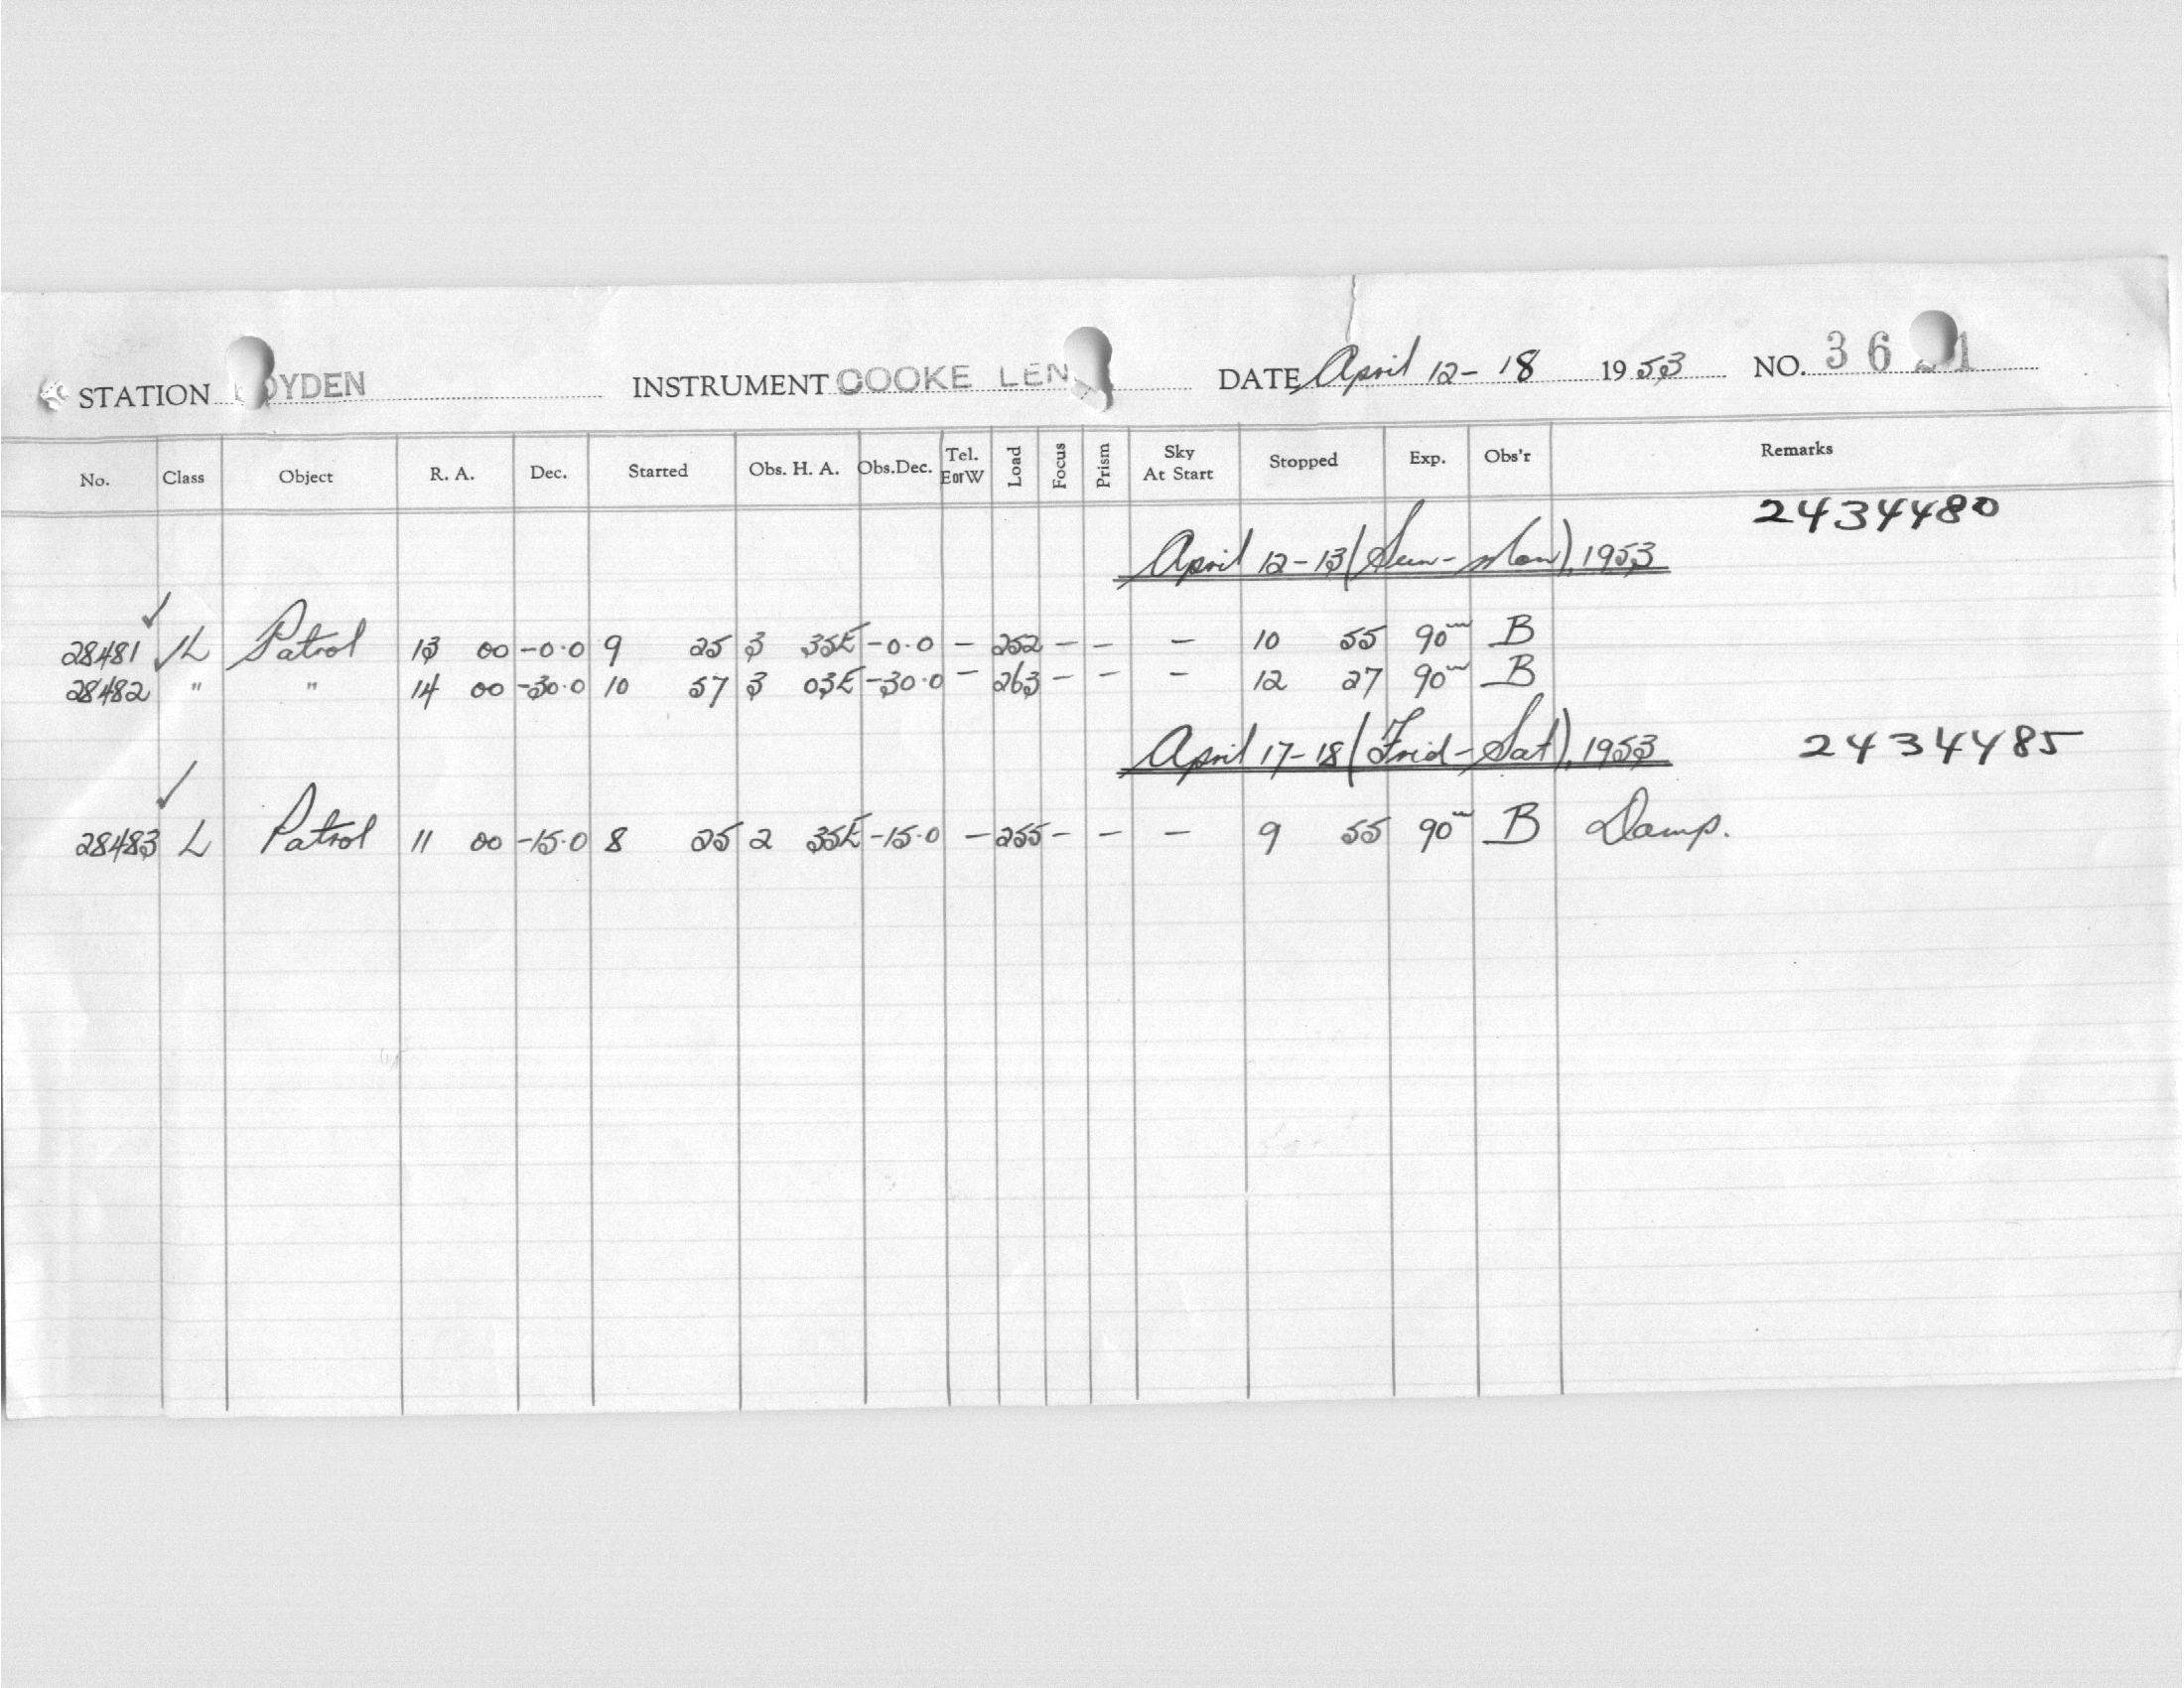 STATION OYDEN INSTRUMENT COOKE LEN DATE April 12-18 1953 NO. 36 1
No. Class Object R. A. Dec. Started Obs. H. A. Obs.Dec. Tel. EorW Load Focus Prism Sky At Start Stopped Exp. Obs'r Remarks
2434480
April 12-13 (Sun-Mon), 1953
28481 ✓L Patrol 13 00 -0.0 9 25 3 35E -0.0 - 252 - - - 10 55 90m B
28482 " " 14 00 -30.0 10 57 3 03E -30.0 - 263 - - - 12 27 90m B
April 17-18 (Frid-Sat), 1953 2434485
28483 L Patrol 11 00 -15.0 8 25 2 35E -15.0 - 255 - - - 9 55 90m B Damp.